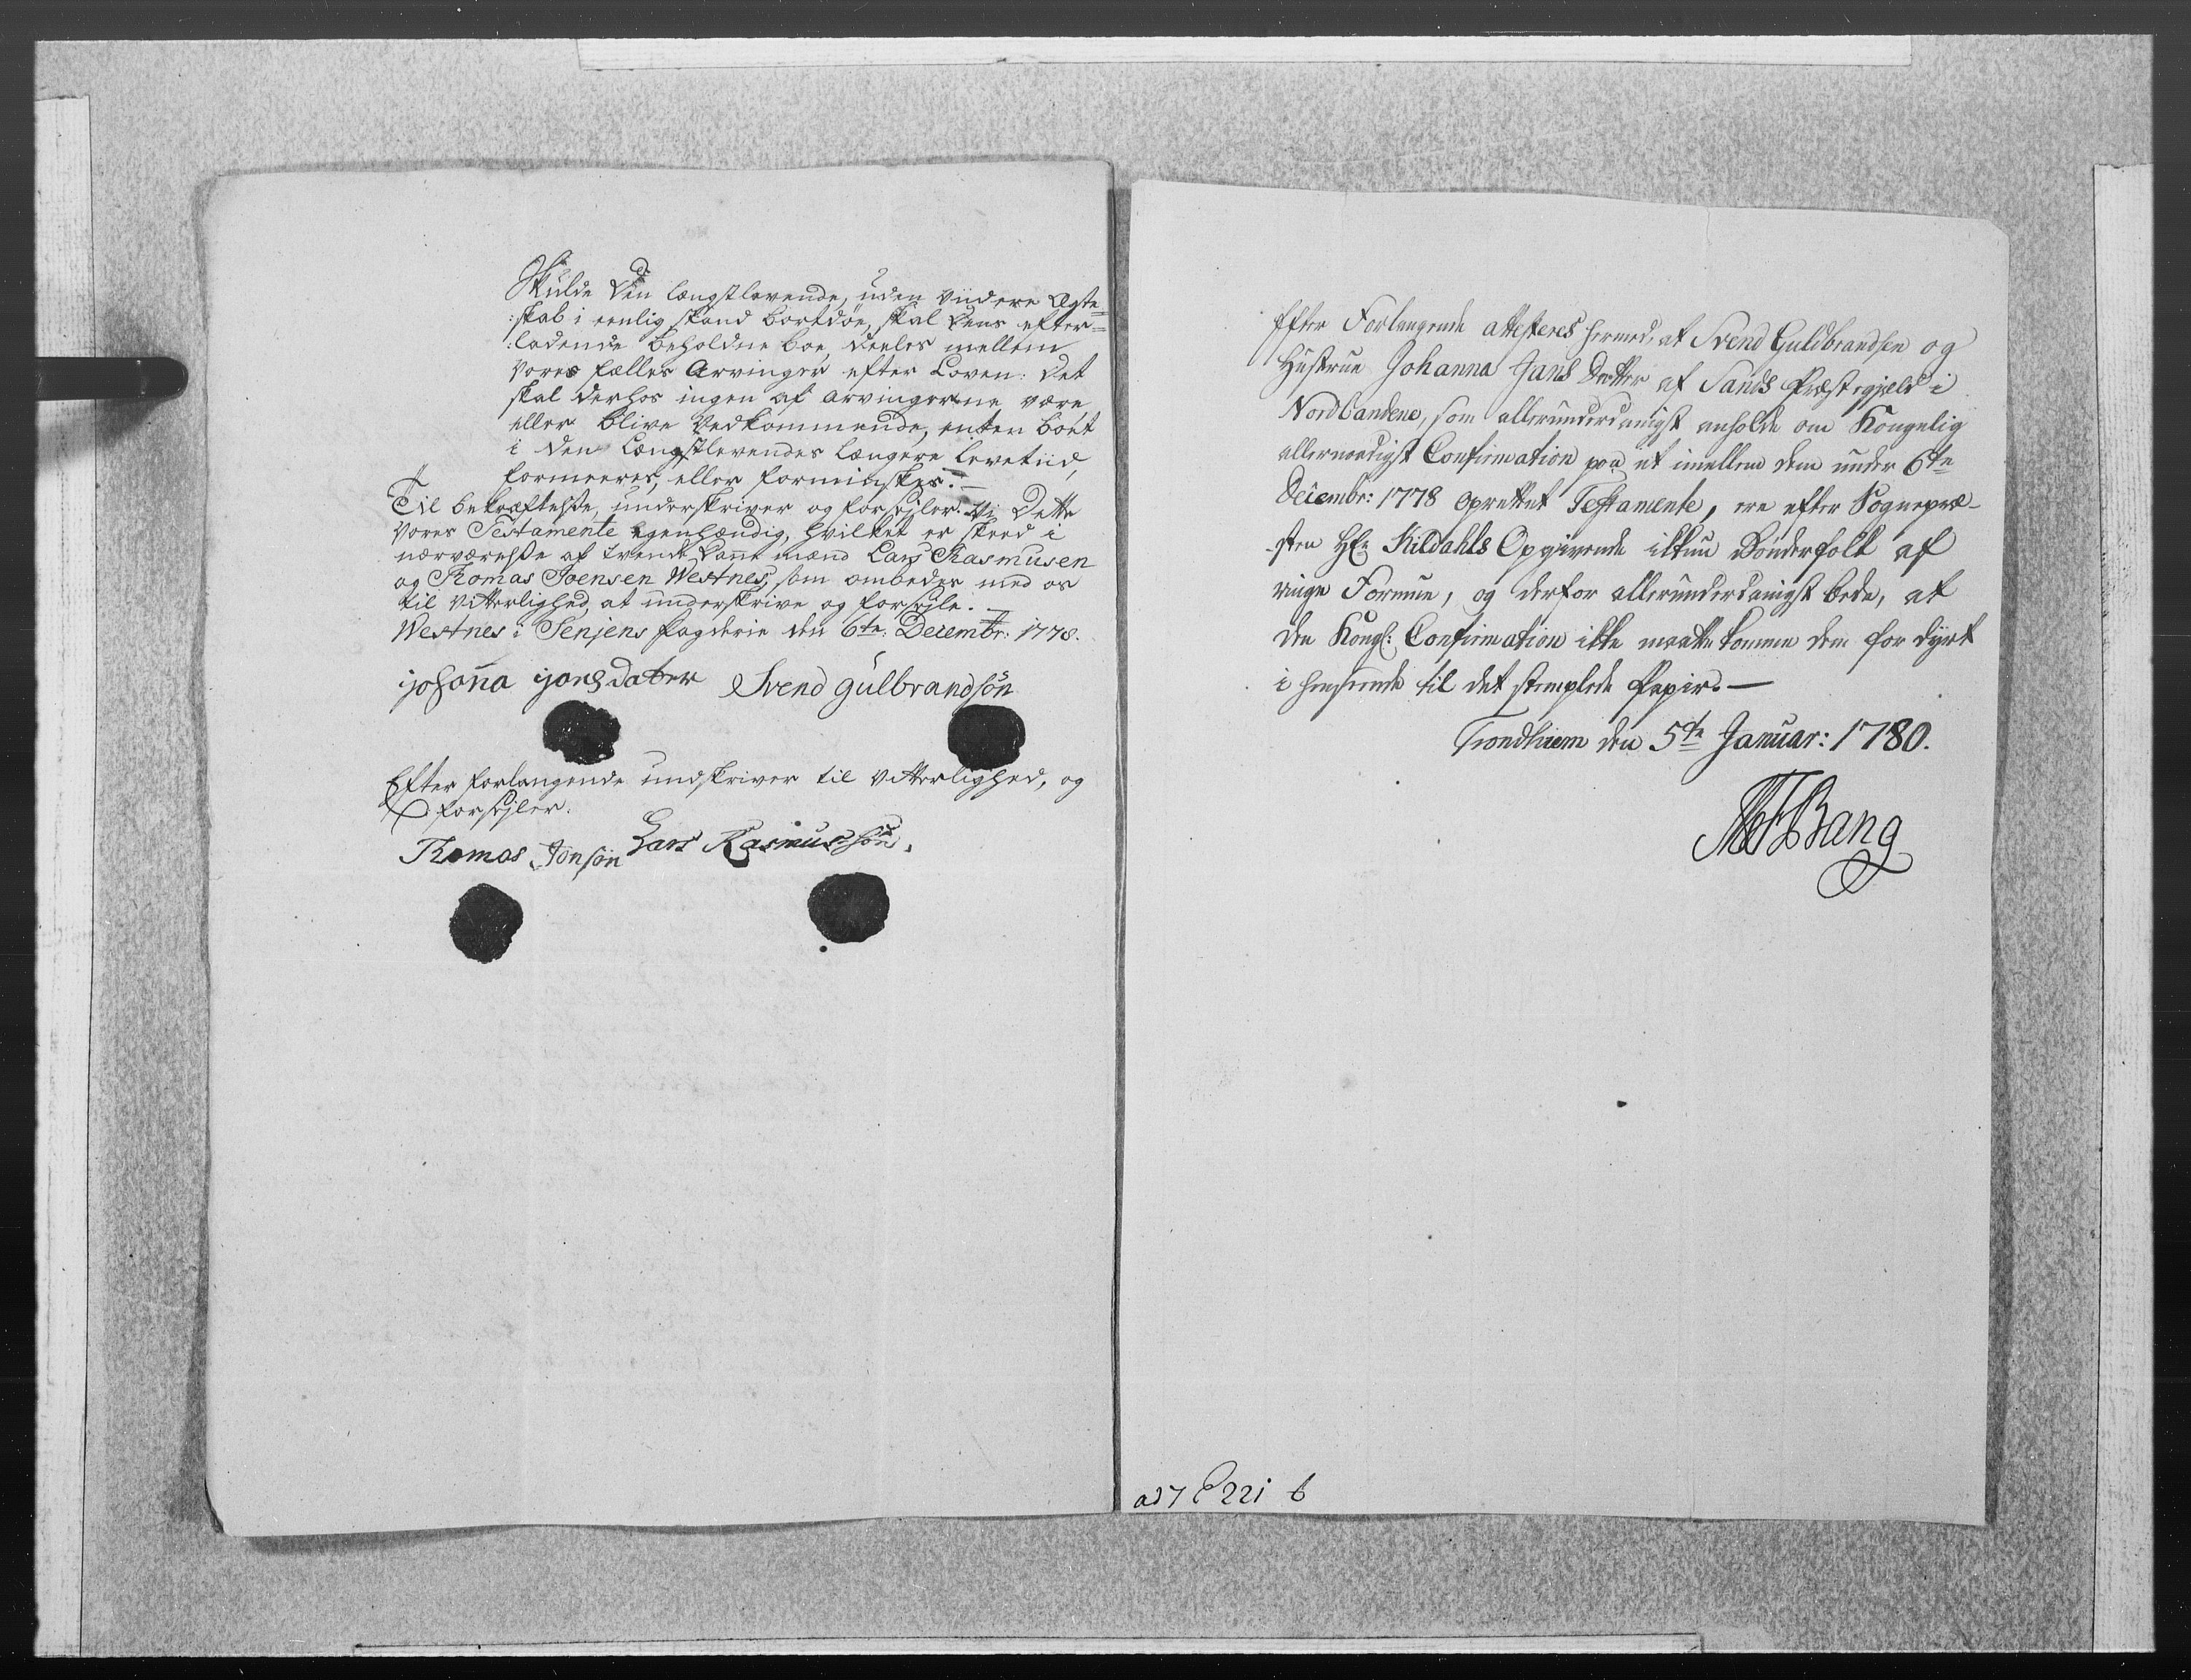 d:
Skulde den længstlevende, uden viidere Ægte=
:skab i eenlig stand bortdøe, skal dens efter=
:ladende beholdne boe, deeles mellem
vores fælles Arvinger efter Loven: det
skal derhos ingen af arvingerne være
eller blive Vedkommende, enten boet
i den Længstlevendes længere levetiid,
formeeres, eller formindskes. —
Til bekræftelse, underskriver og forseyler vi Dette
vores Testamente egenhændig, hvilket er skeed i
nærværelse af tvende Dannemænd Lars Rasmusen
og Thomas Joensen Westnes, som ombedes med os
til vitterlighed, at underskrive og forseyle. —
Westnes i Senjens fogderie den 6te: Decembr: 1778.
johana jonsdater Svend gulbrandsøn
Efter forlangende undskriver til vitterlighed, og
forseyler.
Thomas Jonsøn Lars Rasmussøn.
Efter Forlangende attesteres hermed, at Svend Guldbrandsen og
Hustrue Johanna Jans Datter af Sands Præstegjæld i
Nordlandene, som allerunderdanigst anholde om Kongelig
allernaadigst Confirmation paa et imellem dem under 6te
Decembr: 1778 oprettet Testamente, ere efter Sognepræ-
-sten Hr: Kildahls Opgivende ikkun Bønderfolk af
ringe Formue, og derfor allerunderdanigst bede, at
den Kongl: Confirmation ikke maatte komme dem for dyrt
i henseende til det stemplede Papir. —
Trondhiem den 5te Januar: 1780.
Bang
ad 7 E 221 b